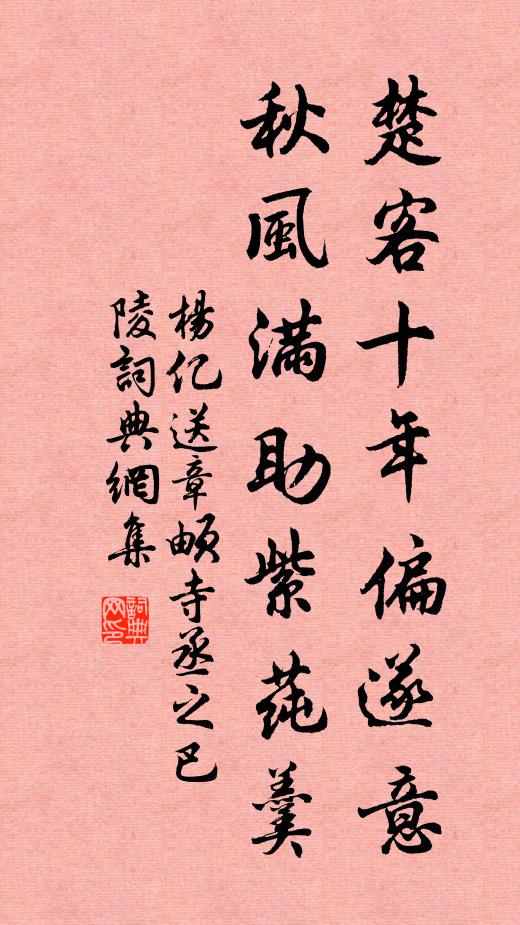 楚客十年偏遂意
秋風滿助紫蓴羹
楊亿送章頔寺丞之巴
陵詞典網集
詞典网印